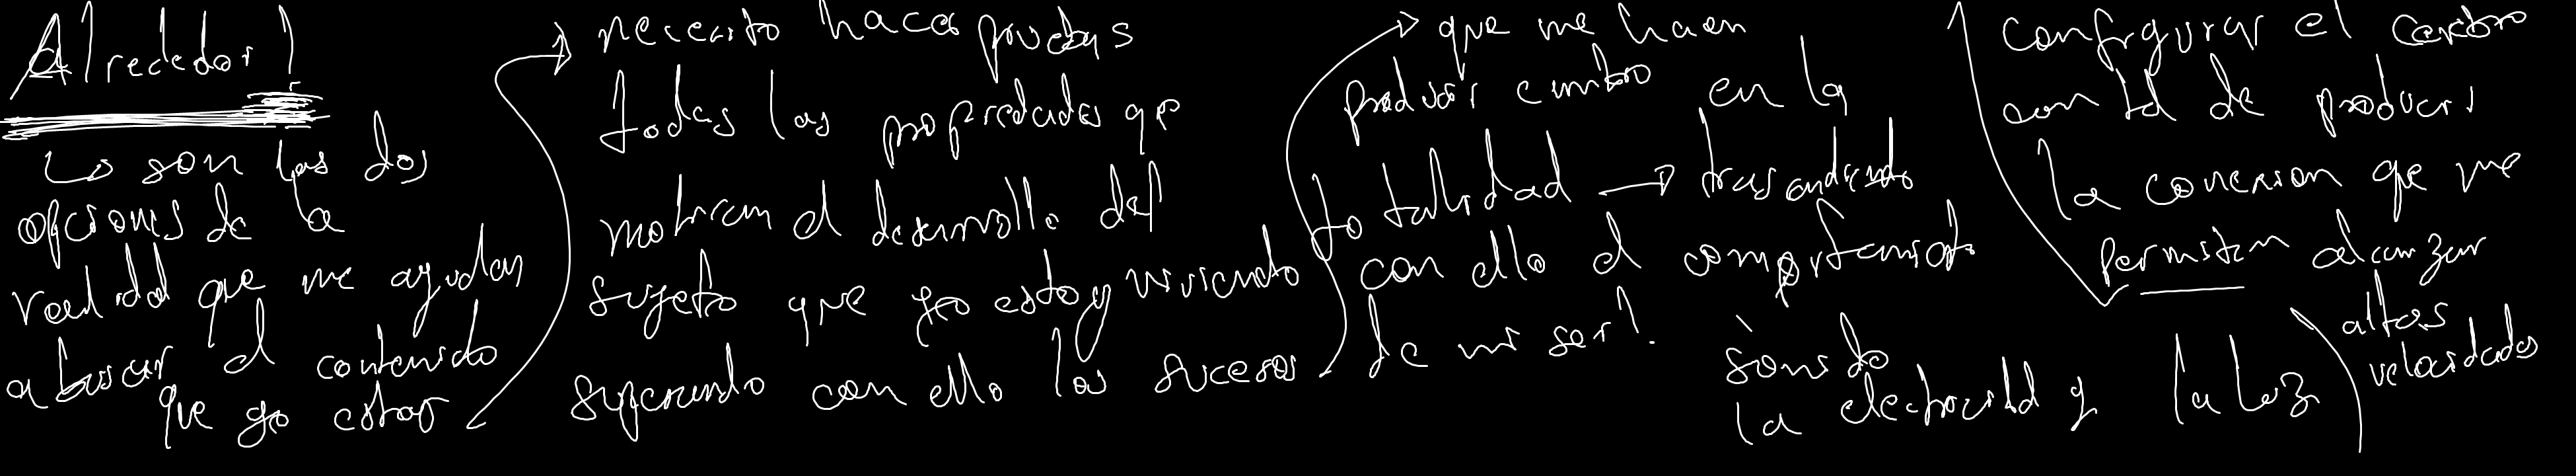 Alrededor!
Lo son las dos
opciones de la
realidad que me ayudan
a buscar el contenido
que yo estoy
necesito hacer pruebas
todas las propiedades que
motivan el desarrollo del
sujeto que yo estoy viviendo
superando con ello los sucesos
que me hacen
producir cambio en la
totalidad → trasandando
con ello el comportamiento
de mi ser!
sonido
la electricidad y la luz
configurar el cerebro
con Id de producir
la conexion que me
permitan alcanzar
altas
velocidades